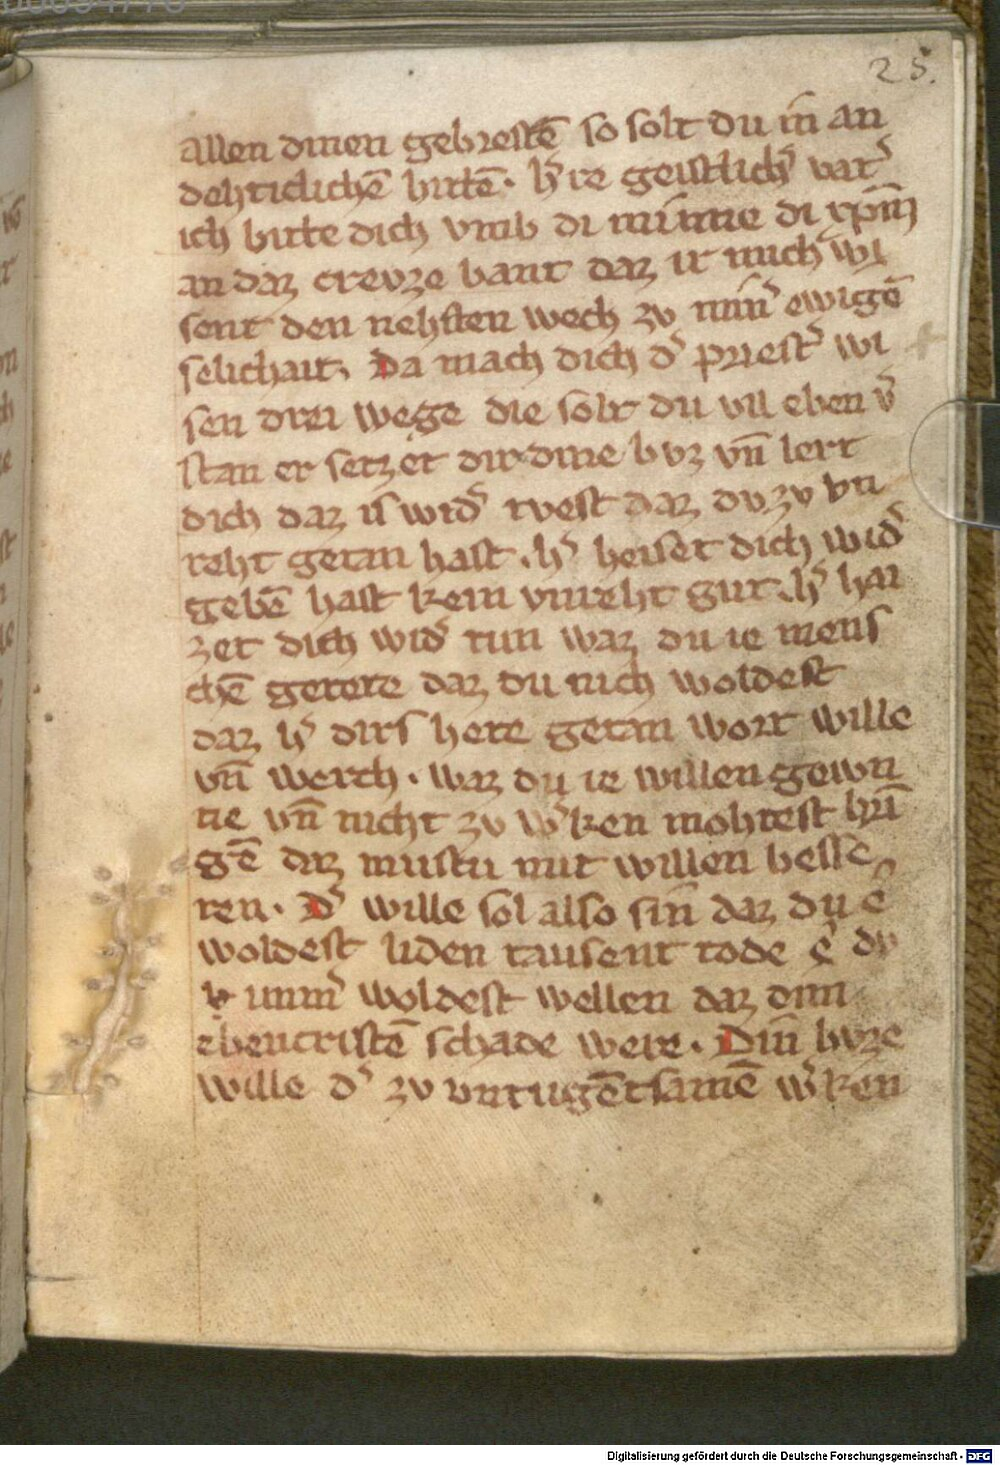 25.
allen dinen gebrestē so solt du in an
dehticlichē bitē · h̾re geistlich̾ vat̾
ich bitte dich vmb di minne di xp̄m
an daz crevze bant daz ir mich wi
sent den nehsten wech zv min̾ ewigē
selichait. Da mach dich d̾ priest̾ wi
sen drei wege die solt du vil eben v̾
stan er setzet dir dine bvz vn̄ lert
dich daz is wid̾ tvest daz dv zv vn
reht getan hast . h̾ heiset dich wid̾
gebē hast kein vnreht gut . h̾ hai
zet dich wid̾ tun waz du ie mens
chē getete daz du nich woldest
daz h̾ dirs hete getan wort wille
vn̄ werch · waz du ie willen gewn
ne vn̄ nicht zv w̾ken mohtest bri
gē daz mustu mit willen besse
ren · D̾ wille sol also sin daz du e
woldest liden tausent tode e dv
imm̾ woldest wellen daz dinn
ebencristē schade were · Din bvze
wille d̾ zv vntugētsamē w̾ken
Digitalisierung gefördert durch die Deutsche Forschungsgemeinschaft - DFG